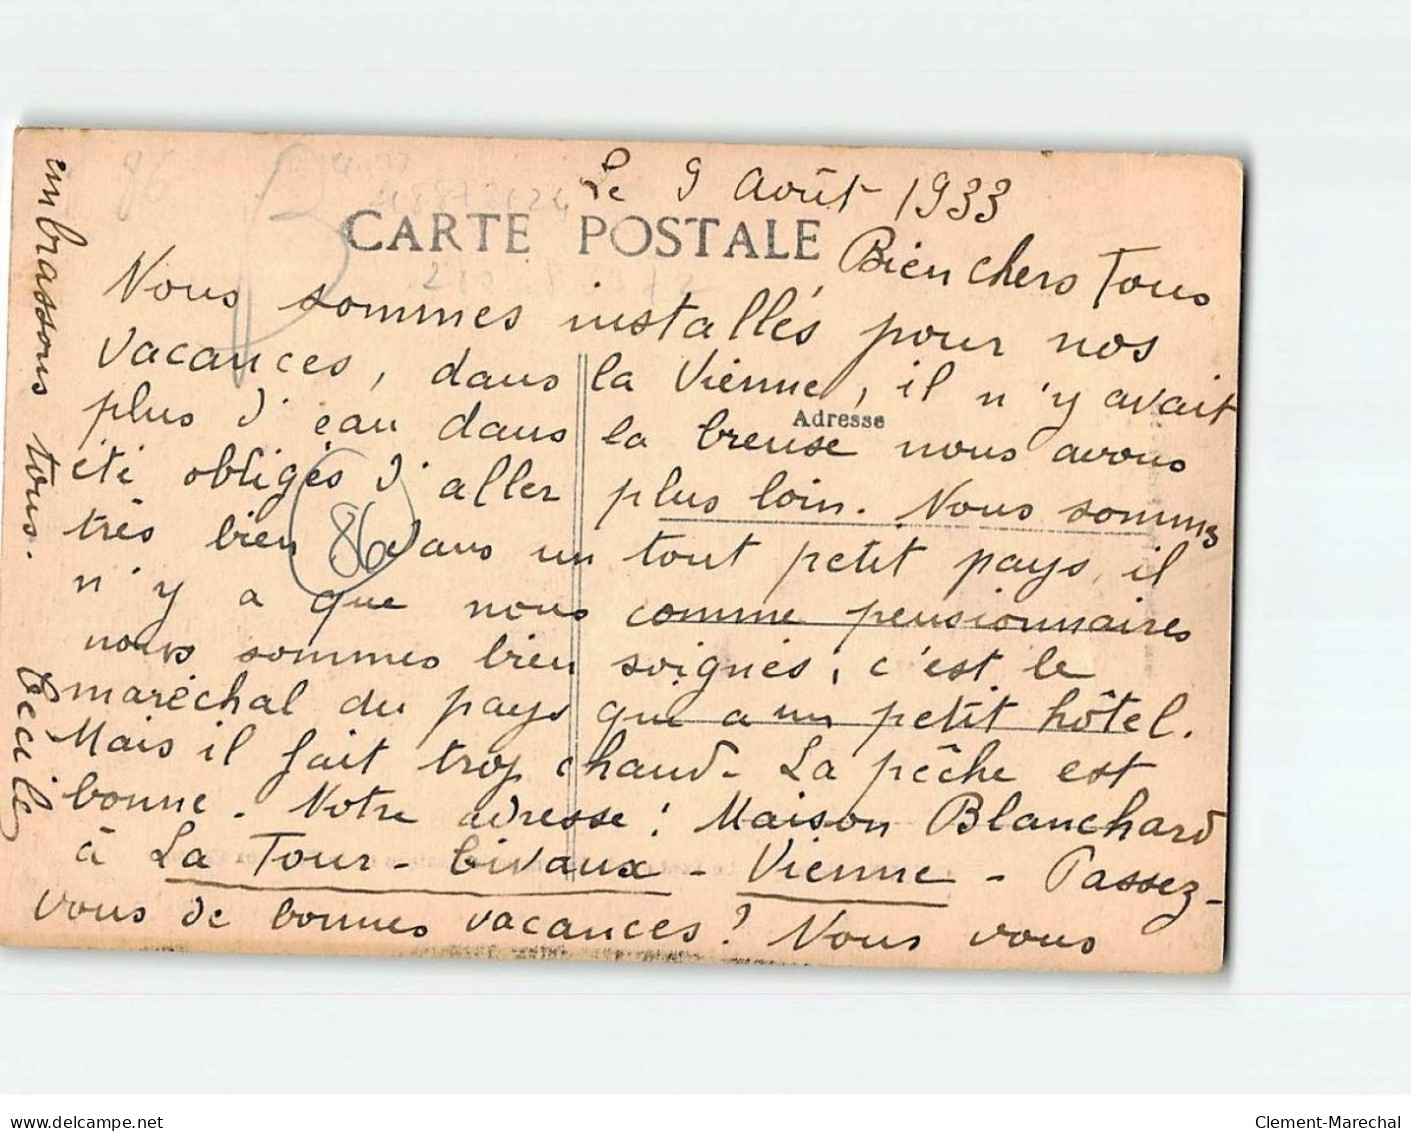 Le 9 Août 1933
CARTE POSTALE
Bien chers Tous
Nous sommes installés pour nos
vacances, dans la Vienne, il n'y avait
Adresse
plus d'eau dans la Creuse nous avons
été obligés d'aller plus loin. Nous sommes
très bien dans un tout petit pays, il
n'y a que nous comme pensionnaires
nous sommes bien soignés, c'est le
maréchal du pays qui a un petit hôtel.
Mais il fait trop chaud - La pêche est
bonne. Notre adresse : Maison Blanchard
à La Tour - Civaux - Vienne - Passez-
vous de bonnes vacances ? Nous vous
embrassons tous.
Cécile
86
86
clement-marechal.delcampe.net
Clement-Marechal